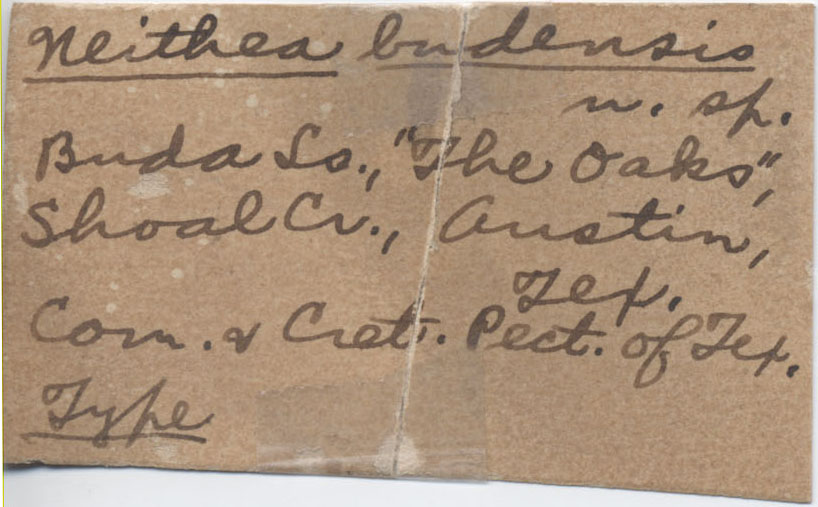 Neithea budensis
n. sp.
Buda Ls., "The Oaks",
Shoal Cr., Austin,
Tex.
Com. & Cret. Pect. of Tex.
Type